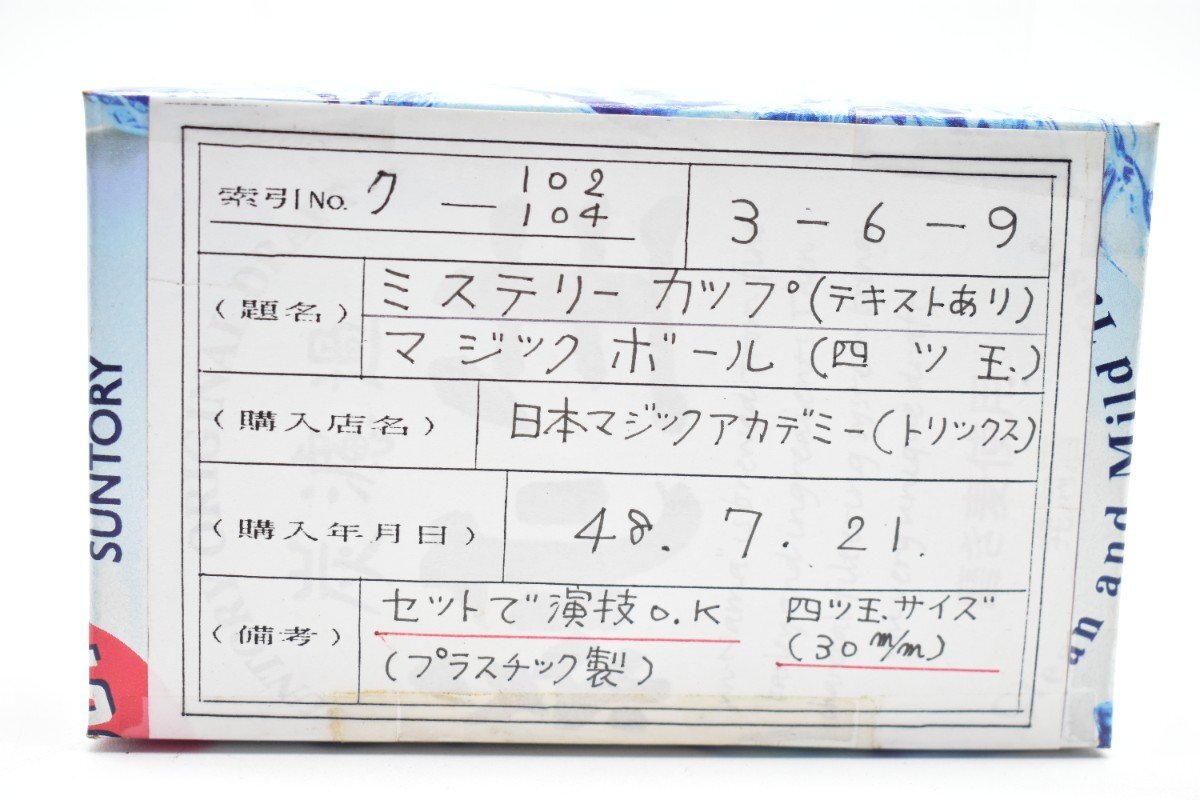 索引No. ク — 102
104
3 - 6 - 9
(題名) ミステリー カップ (テキストあり)
マジック ボール (四ツ玉.)
(購入店名) 日本マジックアカデミー(トリックス)
(購入年月日) 48. 7. 21.
(備考) セットで演技O.K
(プラスチック製)
四ツ玉.サイズ
(30 m/m)
SUNTORY
and Mild